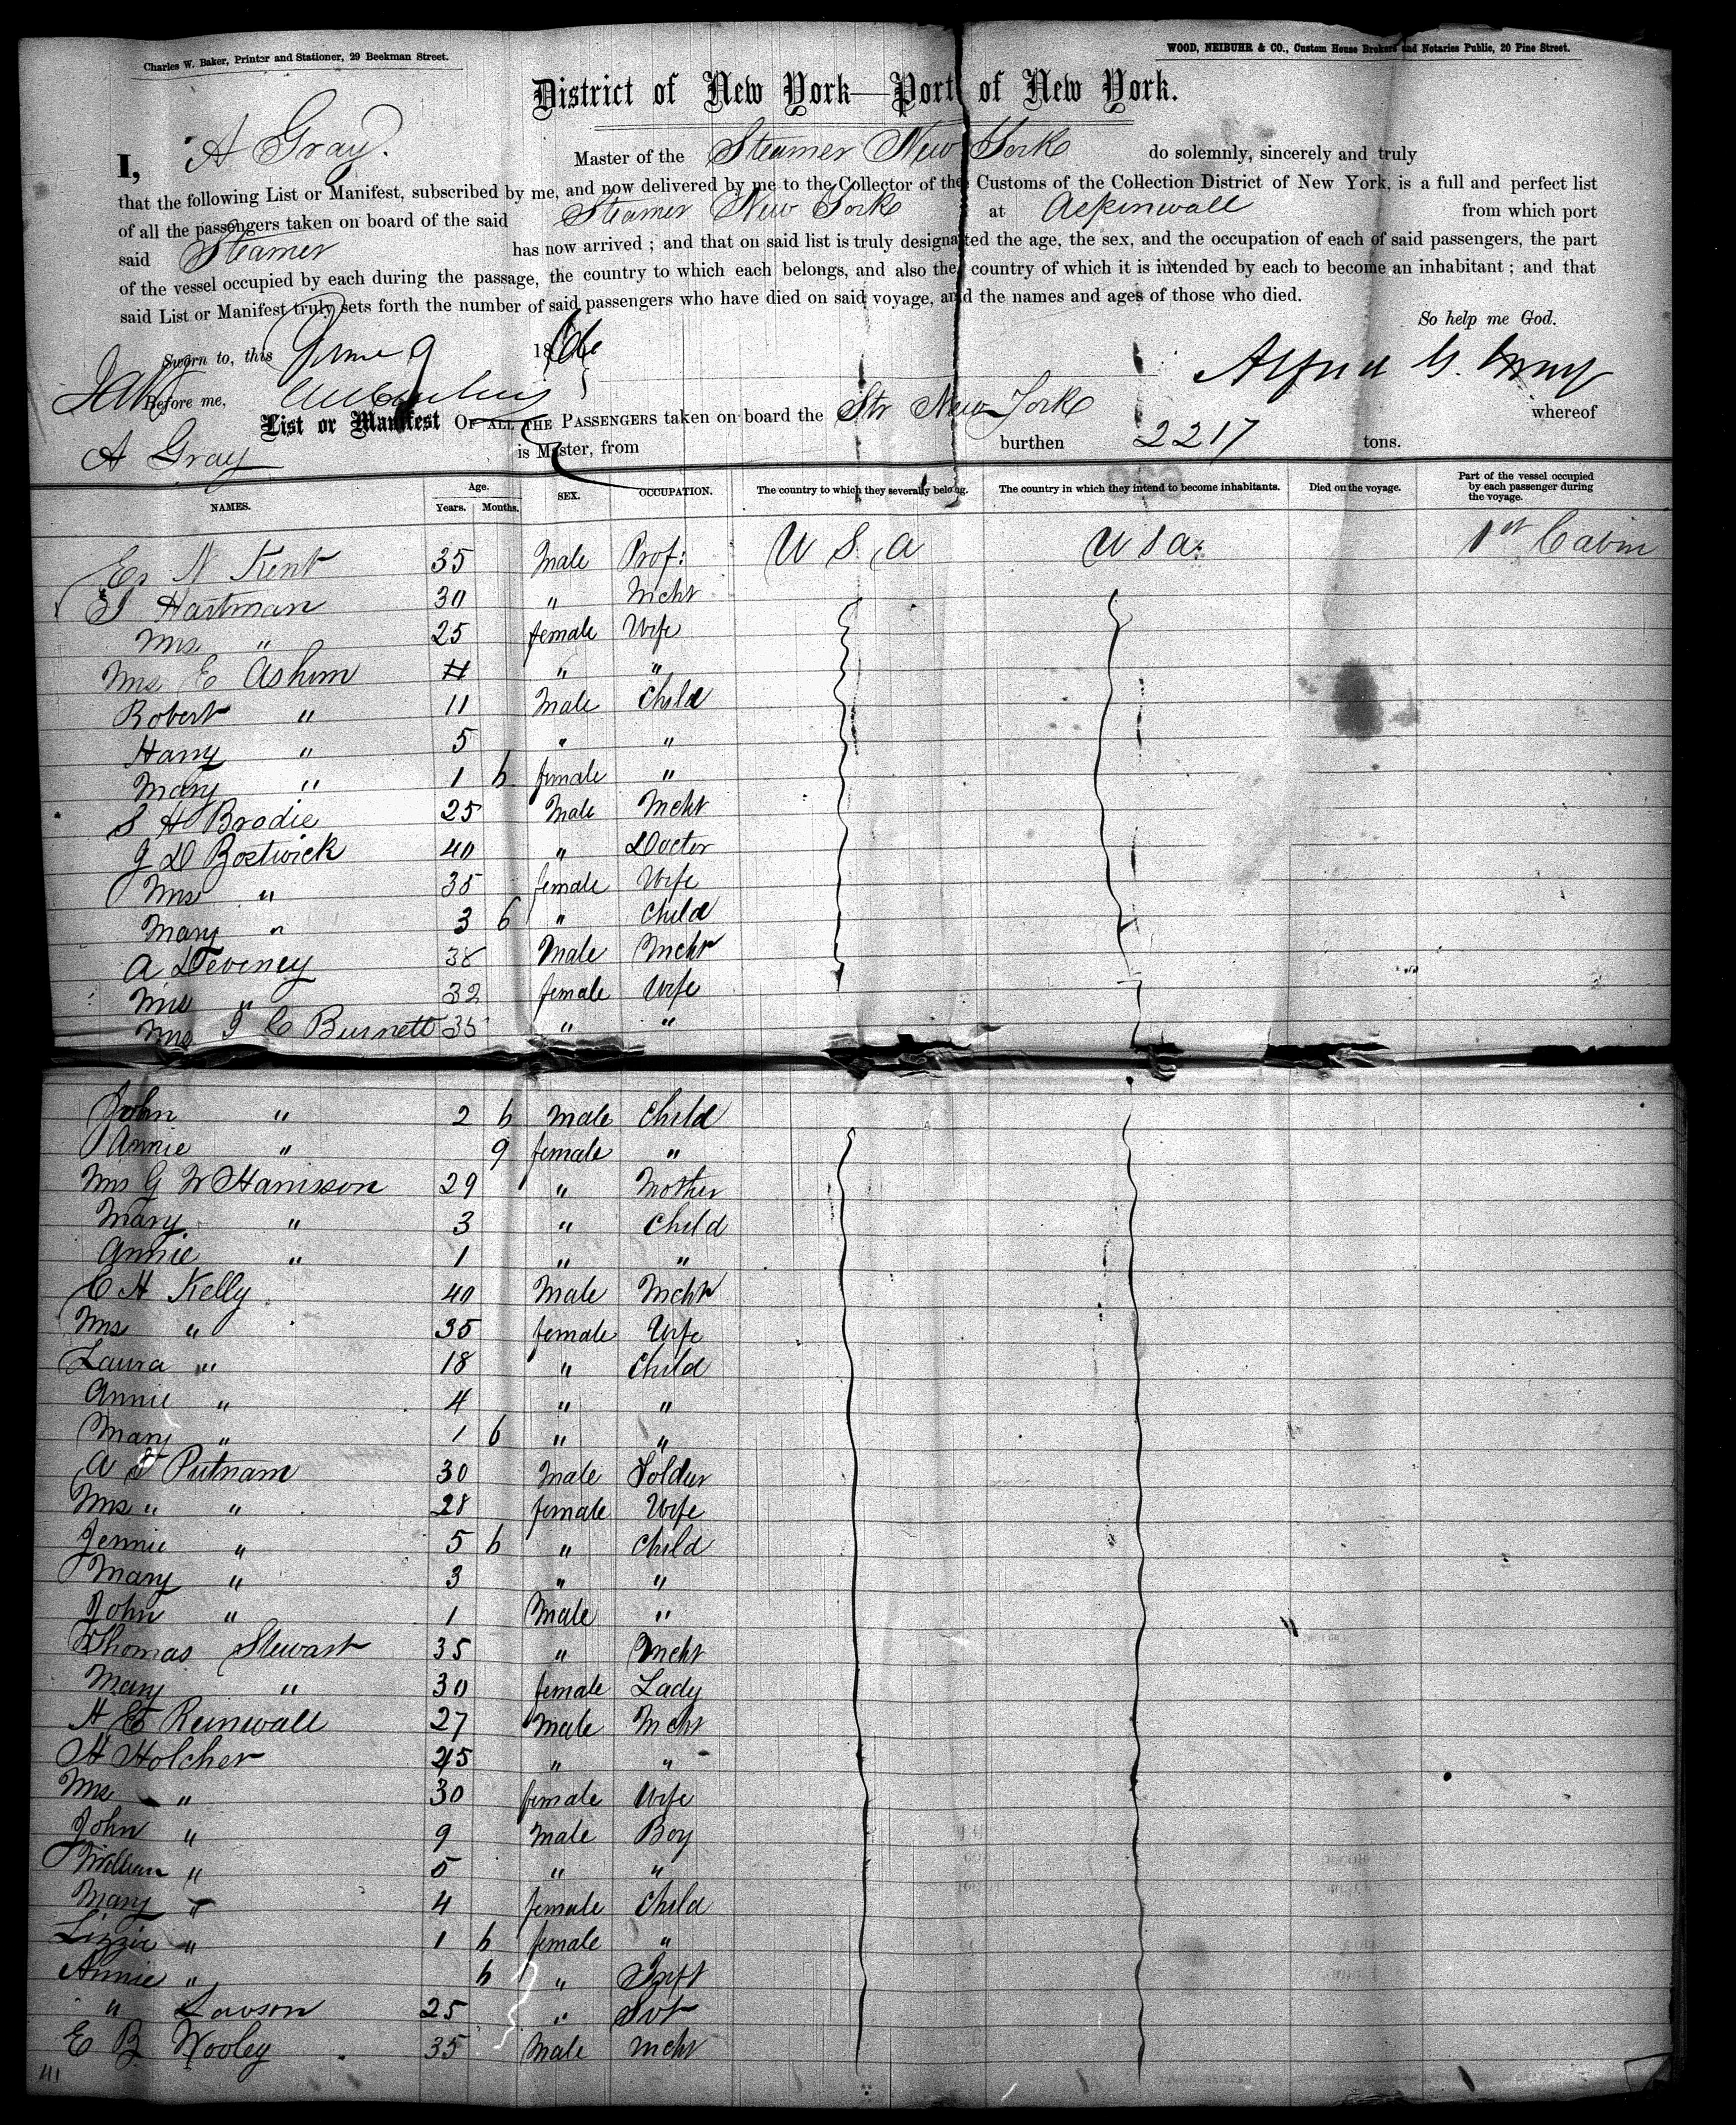 Charles W. Baker, Printer and Stationer, 29 Beekman Street.
WOOD, NEIBUHR & CO., Custom House Brokers and Notaries Public, 20 Pine Street.
District of New York—Port of New York.
I, A Gray. Master of the Steamer New York do solemnly, sincerely and truly
that the following List or Manifest, subscribed by me, and now delivered by me to the Collector of the Customs of the Collection District of New York, is a full and perfect list
of all the passengers taken on board of the said Steamer New York at Aspinwall from which port
said Steamer has now arrived ; and that on said list is truly designated the age, the sex, and the occupation of each of said passengers, the part
of the vessel occupied by each during the passage, the country to which each belongs, and also the country of which it is intended by each to become an inhabitant ; and that
said List or Manifest truly sets forth the number of said passengers who have died on said voyage, and the names and ages of those who died.
So help me God.
Sworn to, this June 9 1866
Alfred G. Gray
Before me,
List or Manifest OF ALL THE PASSENGERS taken on board the Str New York whereof
A Gray is Master, from burthen 2217 tons.
NAMES. Age. Years. Months. SEX. OCCUPATION. The country to which they severally belong. The country in which they intend to become inhabitants. Died on the voyage. Part of the vessel occupied by each passenger during the voyage.
N Kent 35 Male Prof: U S A U S a. 1st Cabin
Hartman 30 " Mcht
Mrs " 25 female Wife
Mrs E Ashim " "
Robert " 11 Male Child
Harry " 5 " "
Mary " 1 6 female "
S H Brodie 25 Male Mcht
J D Bostwick 40 " Doctor
Mrs " 35 female Wife
Mary " 3 6 " Child
A Deveney 38 Male Mcht
Mrs " 32 female Wife
Mrs J C Burnett 35 " "
John " 2 6 Male Child
Annie " 9 female "
Mrs G W Harrison 29 " Mother
Mary " 3 " Child
Annie " 1 " "
C H Kelly 40 Male Mcht
Mrs " 35 female Wife
Laura " 18 " Child
Annie " 4 " "
Mary " 1 6 " "
A Putnam 30 Male Soldier
Mrs " " 28 female Wife
Jennie " 5 6 " Child
Mary " 3 " "
John " 1 Male "
Thomas Stewart 35 " Mcht
Mary " 30 female Lady
H E Reinwall 27 Male Mcht
H Holcher 45 " "
Mrs " 30 female Wife
John " 9 Male Boy
William " 5 " "
Mary " 4 female Child
Lizzie " 1 6 female "
Annie " 6 " Inft
" Lawson 25 " Svt
E B Wooley 35 Male Mcht